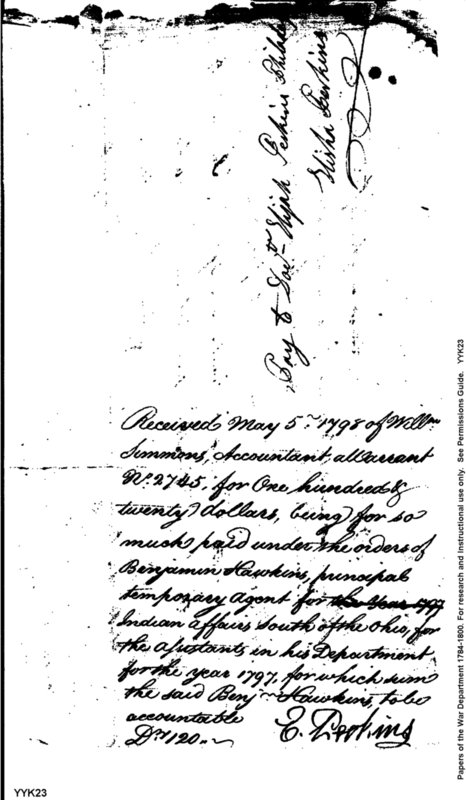 Pay to Doct^r Elijah Perkins Philad^a
Elisha Perkins
Received May 5^th 1798 of Will^m
Simmons, Accountant, a Warrant
N^o. 2745, for One hundred &
twenty dollars, being for so
much paid under the orders of
Benjamin Hawkins, principal
temporary agent for the Year 1797
Indian affairs South of the Ohio, for
the assistants in his Department
for the year 1797, for which sum
the said Benj^n Hawkins, to be
accountable
D^rs 120..
E. Perkins
Papers of the War Department 1784-1800. For research and instructional use only. See Permissions Guide. YYK23
YYK23